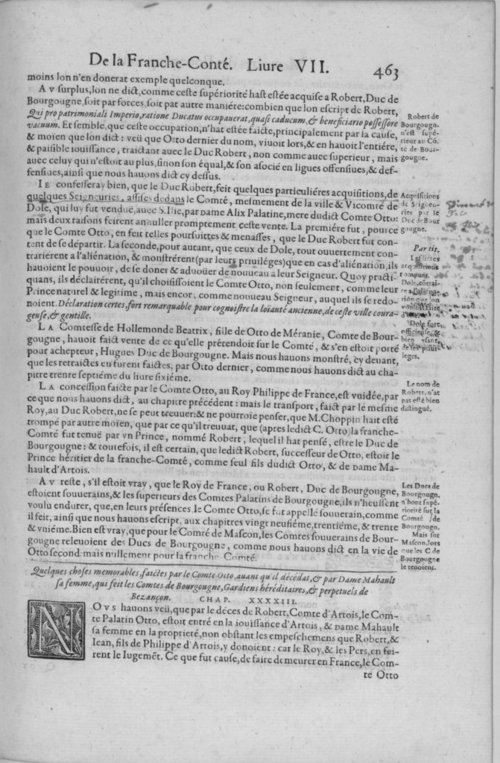 De la Franche-Conté. Liure VII. 463
moins lon n'en donerat exemple quelconque.
AV surplus, lon ne dict, comme ceste supériorité hast estée acquise a Robert, Duc de
Bourgougne, soit par forces, soit par autre maniére: combien que lon escript de Robert,
Qui pro patrimoniali Imperio, ratione Ducatus occupauerat, quasi caducum, & beneficiario possessore
vacuum. Et semble, que ceste occupation, n'hat estée faicte, principalement par la cause,
& moien que lon dit: veü que Otto dernier du nom, viuoit lors, & en hauoit l'entiére,
& paisible iouissance, traictant auec le Duc Robert, non comme auec superieur, mais
auec celuy qui n'estoit au plus, sinon son équal, & son asocié en ligues offensiues, & def-
fensiues, ainsi que nous hauons dict cy dessus.
IE confesseray bien, que le Duc Robert, feit quelques particuliéres acquisitions, de
quelques Seigneuries, assises dedans le Comté, mesmement de la ville & Vicomté de
Dole, qui luy fut vendue, auec par dame Alix Palatine, mere dudict Comte Otto:
mais deux rasons feirent annuller promptement ceste vente. La premiére fut, pource
que le Comte Otto, en feit telles poursuittes & menasses, que le Duc Robert fut con-
tent de se départir. La seconde, pour autant, que ceux de Dole, tout ouuertement con-
trariérent a l'aliénation, & monstrérent (par leurs priuiléges) que en cas d'aliénation, ils
hauoient le pouuoir, de se doner & aduoüer de nouueau a leur Seigneur. Quoy practi-
quans, ils déclairérent, qu'il choisissoient le Comte Otto, non seulement, comme leur
Prince naturel & legitime, mais encor, comme nouueau Seigneur, auquel ils se redo-
noient. Déclaration certes, fort remarquable pour cognoistre la loiauté ancienne, de ceste ville coura-
geuse, & gentille.
LA Comtesse de Hollemonde Beatrix, fille de Otto de Méranie, Comte de Bour-
gougne, hauoit faict vente de ce qu'elle prétendoit sur le Comté, & s'en estoit porté
pour achepteur, Hugues Duc de Bourgougne. Mais nous hauons monstré, cy deuant,
que les retraictes en furent faictes, par Otto dernier, comme nous hauons dict au cha-
pitre trente septiéme du liure sixiéme.
LA concession faicte par le Comte Otto, au Roy Philippe de France, est vuidée, par
ce que nous hauons dict, au chapitre précédent: mais le transport, faict par le mesme
Roy, au Duc Robert, ne se peut treuuer: & ne pourroie penser, que M. Choppin hait esté
trompé par autre moien, que par ce qu'il treuuat, que (apres ledict C. Otto) la franche-
Comté fut tenuë par vn Prince, nommé Robert, lequel il hat pensé, estre le Duc de
Bourgougne: & toutefois, il est certain, que ledict Robert, successeur de Otto, estoit le
Prince héritier de la franche-Comté, comme seul fils dudict Otto, & de dame Ma-
hault d'Artois.
AV reste, s'il estoit vray, que le Roy de France, ou Robert, Duc de Bourgougne,
estoient souuerains, & les superieurs des Comtes Palatins de Bourgougne, ils n'heussent
voulu endurer, que, en leurs présences le Comte Otto, se fut appellé souuerain, comme
il feit, ainsi que nous hauons escript, aux chapitres vingt neufiéme, trentiéme, & trente
& vniéme. Bien est vray, que pour le Comté de Mascon, les Comtes souuerains de Bour-
gougne releuoient des Ducs de Bourgougne, comme nous hauons dict en la vie de
Otto second: mais nullement pour la franche Comté.
Quelques choses memorables, faictes par le Comte Otto, auant qu'il décédat, & par Dame Mahault
sa femme, qui feit les Comtes de Bourgougne, Gardiens héréditaires, & perpetuels de
Bezançon. CHAP. XXXXIII.
NOVS hauons veü, que par le déces de Robert, Comte d'Artois, le Com-
te Palatin Otto, estoit entré en la iouissance d'Artois, & dame Mahault
sa femme en la proprieté, non obstant les empeschemens que Robert, &
Iean, fils de Philippe d'Artois, y donoient: car le Roy, & les Pers, en fei-
rent le Iugemẽt. Ce que fut cause, de faire demeurer en France, le Com-
te Otto
Robert de
Bourgougn.
n'est supé-
rieur au Cõ-
té de Bour-
gougne.
Acquisitions
de Seigneu-
ries par le
Duc de Bour
gougne.
Le nom de
Robert, n'at
pas esté bien
distingué.
Les Ducs de
Bourgougn.
n'hont supé-
riorité sur la
Comté de
Bourgougn.
Mais sur
Mascon, lors
que les C. de
Bourgougne
le tenoient.